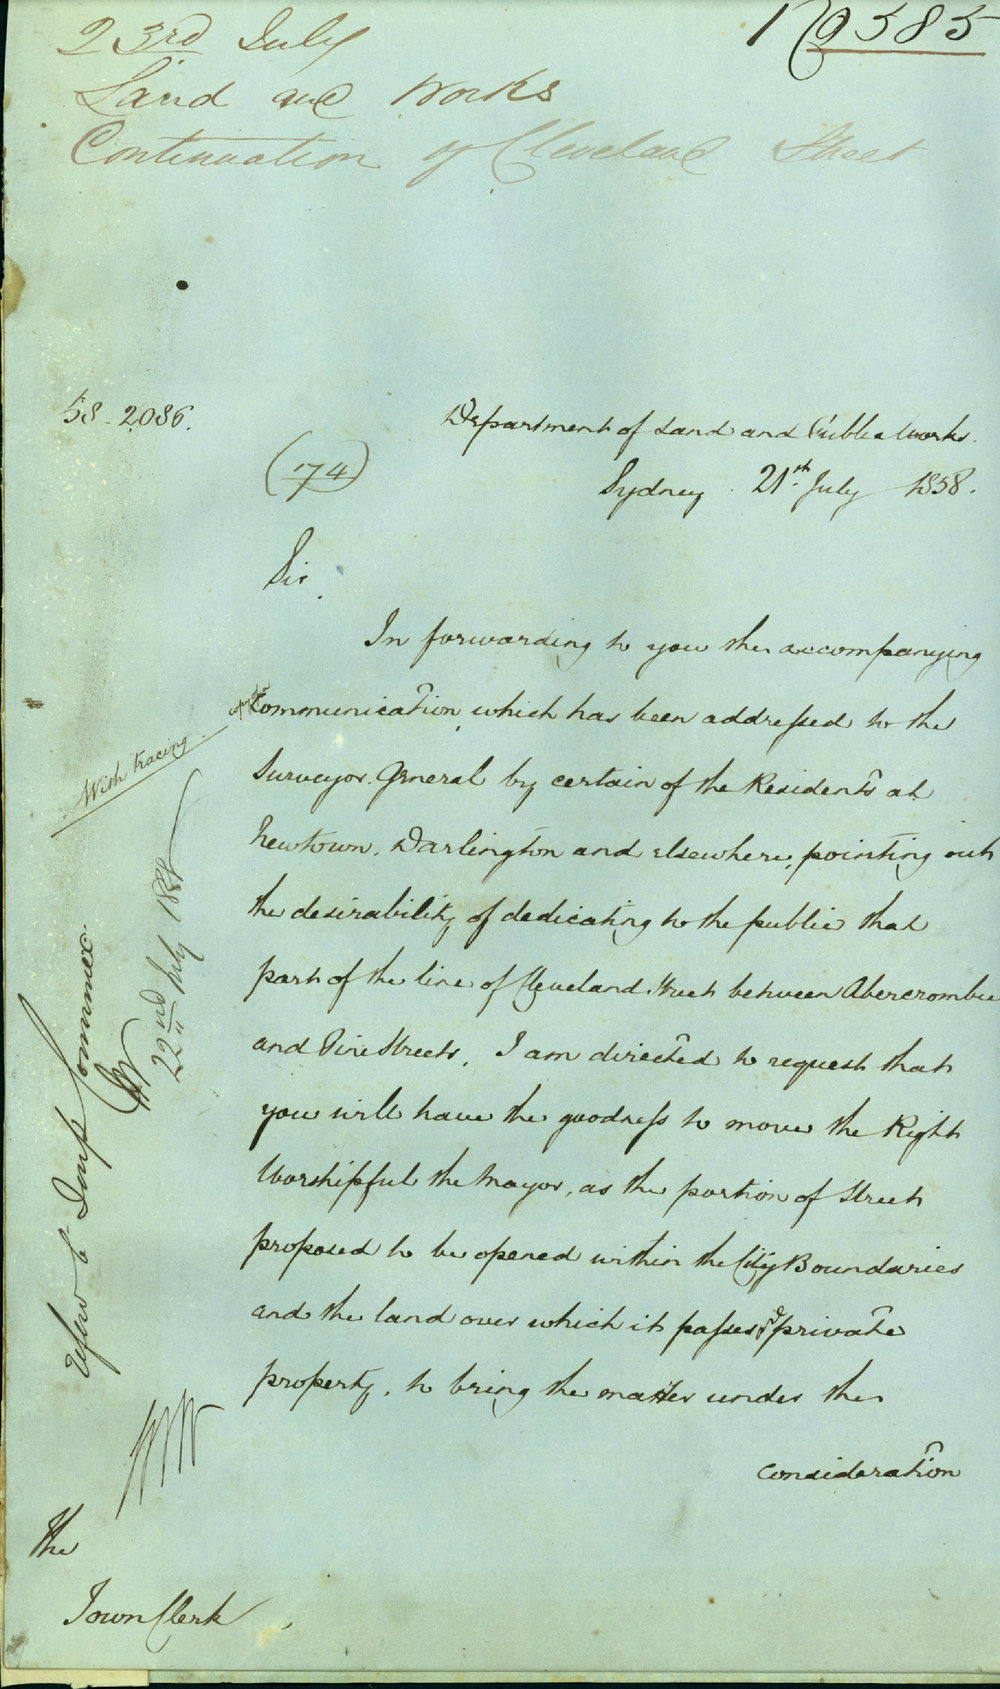 23rd July
Land and Works
Continuation of Cleveland Street
58-2086.
(74)
Department of Land and Public Works.
Sydney 21st July 1858.
Sir
In forwarding to you the accompanying
communication which has been addressed to the
Surveyor General by certain of the Residents at
Newtown, Darlington and elsewhere, pointing out
the desirability of dedicating to the public that
part of the line of Cleveland Street between Abercrombie
and Pine Streets, I am directed to request that
you will have the goodness to move the Right
Worshipful the Mayor, as the portion of Street
proposed to be opened within the City Boundaries
and the land over which it passes private
property, to bring the matter under the
consideration
With tracing
Refer to Commee
22nd July
The
Town Clerk